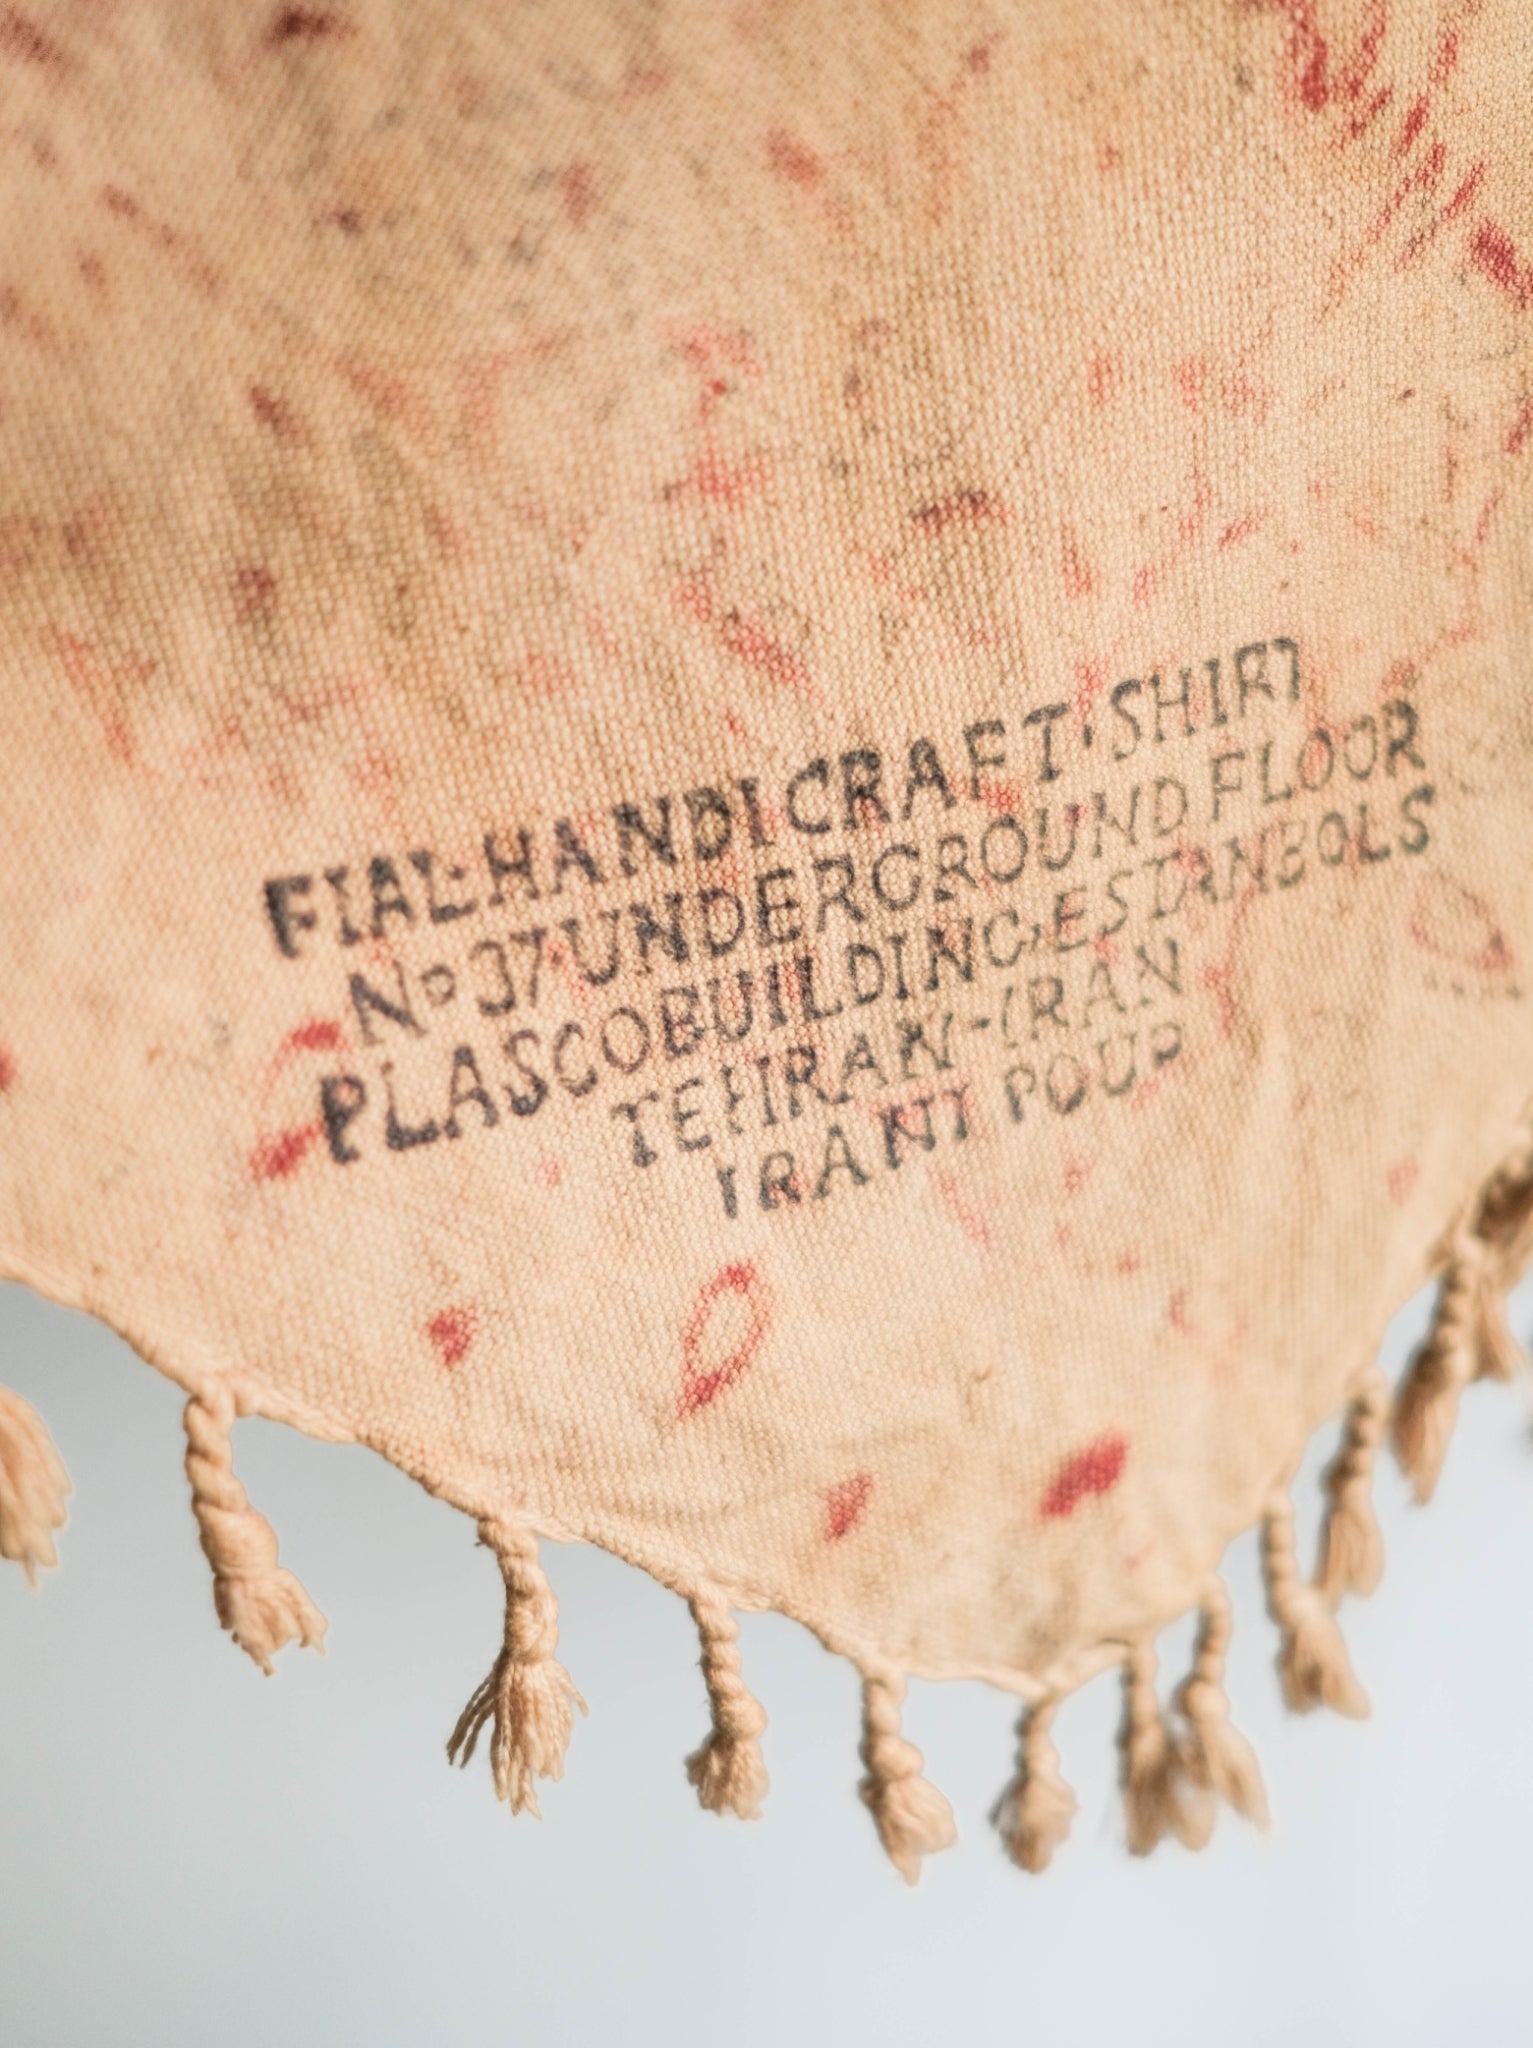 FIAL·HANDICRAFT·SHIRT
No 37·UNDERGROUND FLOOR
PLASCOBUILDING·ESTANBOLS
TEHRAN-IRAN
IRANI POUR